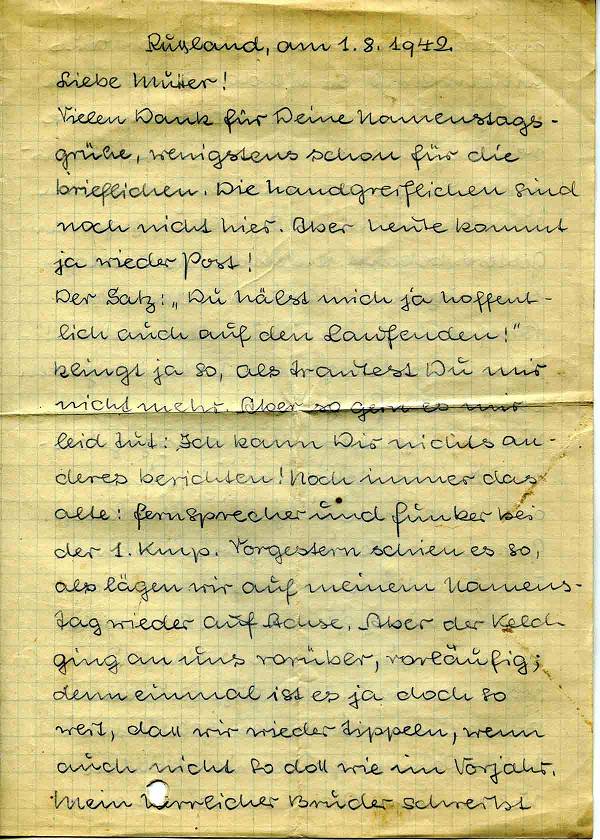 Rußland, am 1.8.1942.
Liebe Mutter!
Vielen Dank für Deine Namenstags-
grüße, wenigstens schon für die
brieflichen. Die handgreiflichen sind
noch nicht hier. Aber heute kommt
ja wieder Post!
Der Satz: „Du hälst mich ja hoffent-
lich auch auf den Laufenden!"
klingt ja so, als trautest Du mir
nicht mehr. Aber so gern es mir
leid tut: Ich kann Dir nichts an-
deres berichten! Noch immer das
alte: Fernsprecher und Funker bei
der 1. Kmp. Vorgestern schien es so,
als lägen wir auf meinem Namens-
tag wieder auf Achse. Aber der Kelch
ging an uns vorüber, vorläufig;
denn einmal ist es ja doch so
weit, daß wir wieder tippeln, wenn
auch nicht so doll wie im Vorjahr.
Mein herrlicher Bruder schreibst